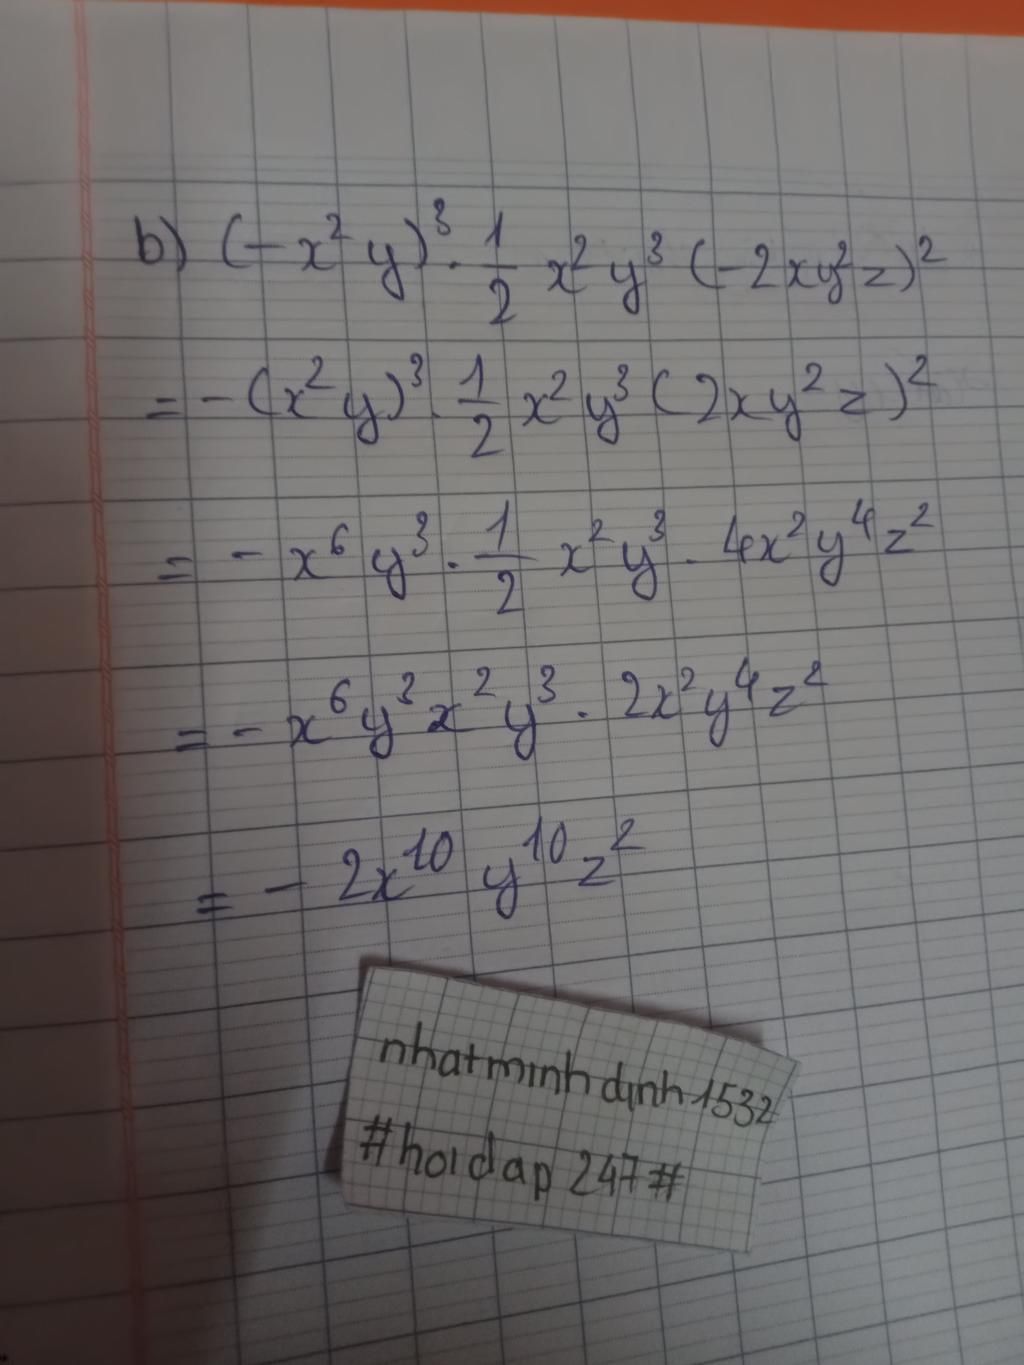 b) (-x²y)³ . 1/2 x²y³ (-2xy²z)²
= -(x²y)³ . 1/2 x²y³ (2xy²z)²
= - x⁶y³ . 1/2 x²y³ . 4x²y⁴z²
= - x⁶y³x²y³ . 2x²y⁴z²
= - 2x¹⁰ y¹⁰z²
nhatminhdinh1532
#hoidap247#